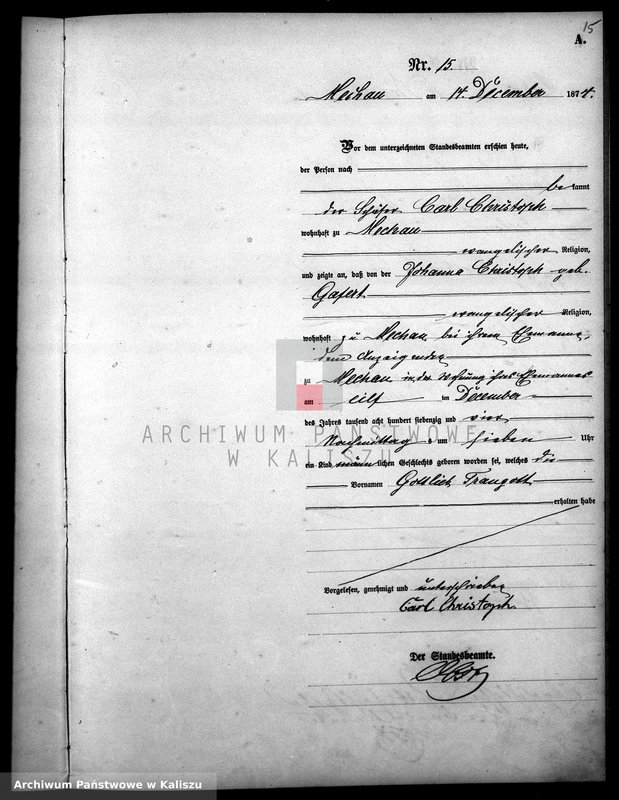 15
A.
Nr. 15.
Mechau am 14. December 1874.
Vor dem unterzeichneten Standesbeamten erschien heute,
der Person nach
bekannt
der Schäfer Carl Christoph
wohnhaft zu Mechau
evangelischer Religion,
und zeigte an, daß von der Johanna Christoph geb.
Gafert
evangelischer Religion,
wohnhaft zu Mechau bei ihrem Ehemanne,
dem Anzeigenden
zu Mechau in der Wohnung ihres Ehemannes
am eilf ten December
des Jahres tausend acht hundert siebenzig und vier
Nachmittag um sieben Uhr
ein Kind männlichen Geschlechts geboren worden sei, welches die
Vornamen Gottlieb Traugott
erhalten habe
Vorgelesen, genehmigt und unterschrieben
Carl Christoph.
Der Standesbeamte.
ARCHIWUM PAŃSTWOWE
W KALISZU
Archiwum Państwowe w Kaliszu